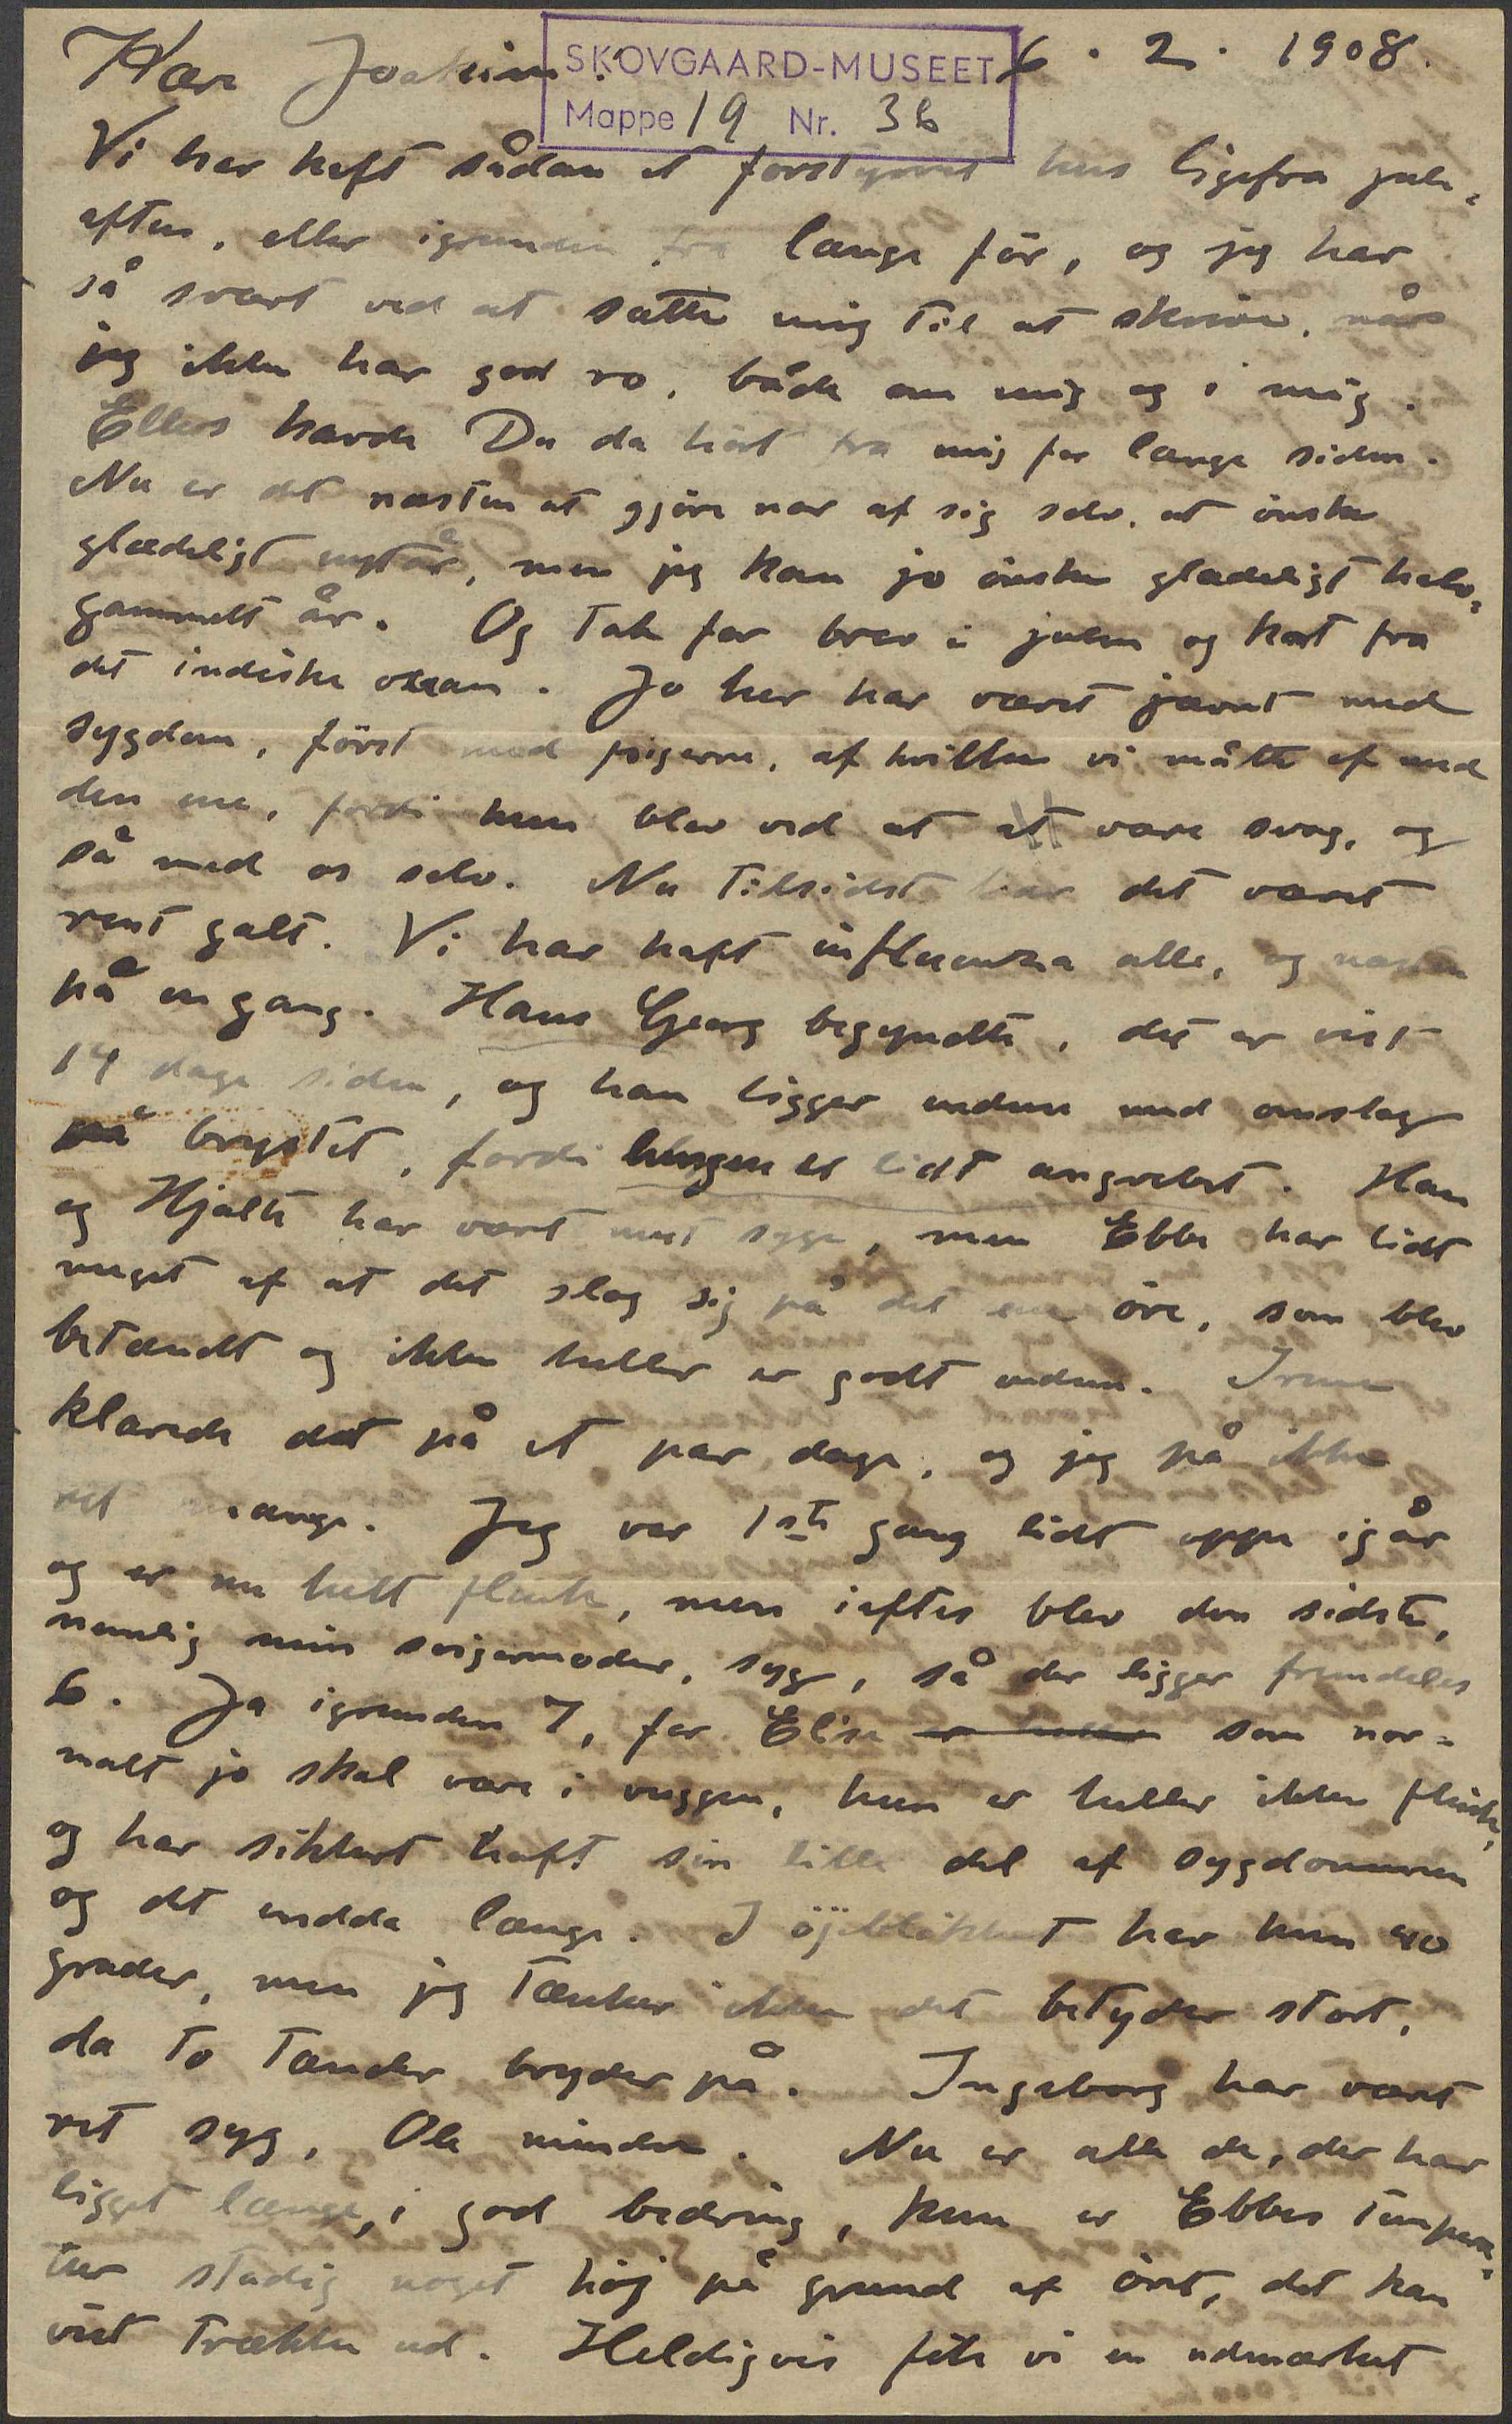 Kære Joakim! 6. 2. 1908.
SKOVGAARD-MUSEET
Mappe 19 Nr. 36
Vi har haft sådan et forstyrret hus ligefra jule=
aften, eller igrunden fra længe för, og jeg har
så svært ved at sætte mig til at skrive, når
jeg ikke har god ro, både om mig og i mig.
Ellers havde Du da hört fra mig for længe siden.
Nu er det næsten at gjöre nar af sig selv, at önske
glædeligt nytår, men jeg kan jo önske glædeligt halv=
gammelt år. Og tak for brev i julen og kort fra
det indiske osean. Jo her har været jævnt med
sygdom, först med pigerne, af hvilke vi måtte af med
den ene, fordi hun blev ved at at være svag, og
så med os selv. Nu tilsidst har det været
rent galt. Vi har haft influenza alle, og næsten
på en gang. Hans Georg begyndte, det er vist
14 dage siden, og han ligger endnu med omslag
på brystet, fordi lungen er lidt angrebet. Han
og Hjalte har været mest syge, men Ebbe har lidt
meget af at det slog sig på det ene öre, som blev
betændt og ikke heller er godt endnu. Irene
klarede det på et par dage, og jeg på ikke
ret mange. Jeg var 1ste gang lidt oppe igår
og er nu helt flink, men iaftes blev den sidste,
nemlig min svigermoder, syg, så der ligger fremdeles
6. Ja igrunden 7, for Elise som nor=
malt jo skal være i vuggen, hun er heller ikke flink,
og har sikkert haft sin lille del af sygdommen
og det endda længe. I öjeblikket har hun 40
grader, men jeg tænker ikke det betyder stort,
da to tænder bryder på. Ingeborg har været
ret syg, Ole mindre. Nu er alle de, der har
ligget længe, i god bedring, kun er Ebbes tempera=
tur stadig noget höj på grund af öret, det kan
vist trække ud. Heldigvis fik vi en udmærket